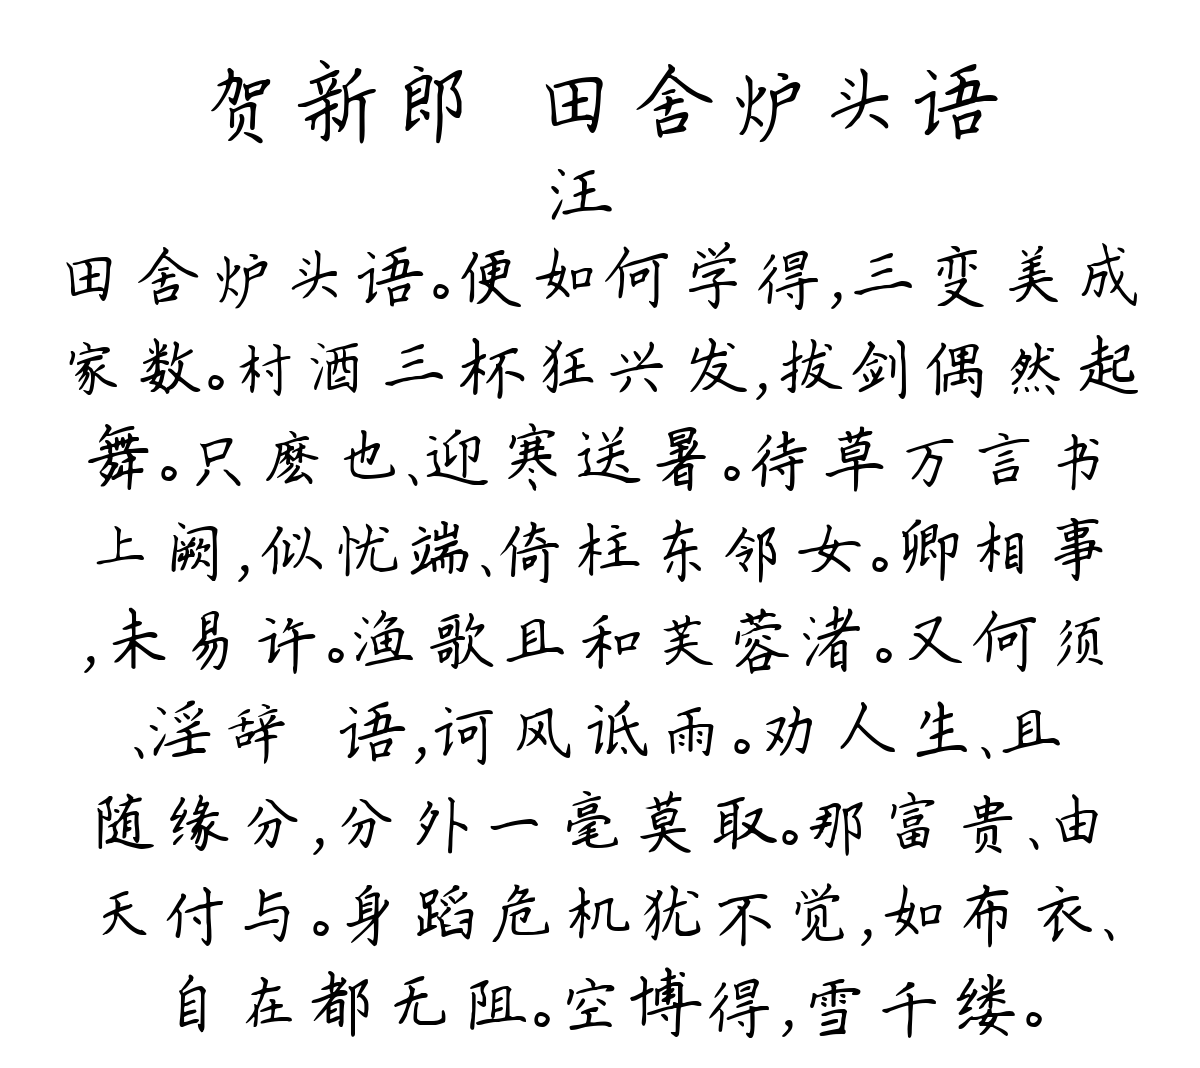 贺新郎 田舍炉头语
汪
田舍炉头语。便如何学得,三变美成
家数。村酒三杯狂兴发,拔剑偶然起
舞。只麽也、迎寒送暑。待草万言书
上阙,似忧端、倚柱东邻女。卿相事
,未易许。渔歌且和芙蓉渚。又何须
、淫辞 语,诃风诋雨。劝人生、且
随缘分,分外一毫莫取。那富贵、由
天付与。身蹈危机犹不觉,如布衣、
自在都无阻。空博得,雪千缕。